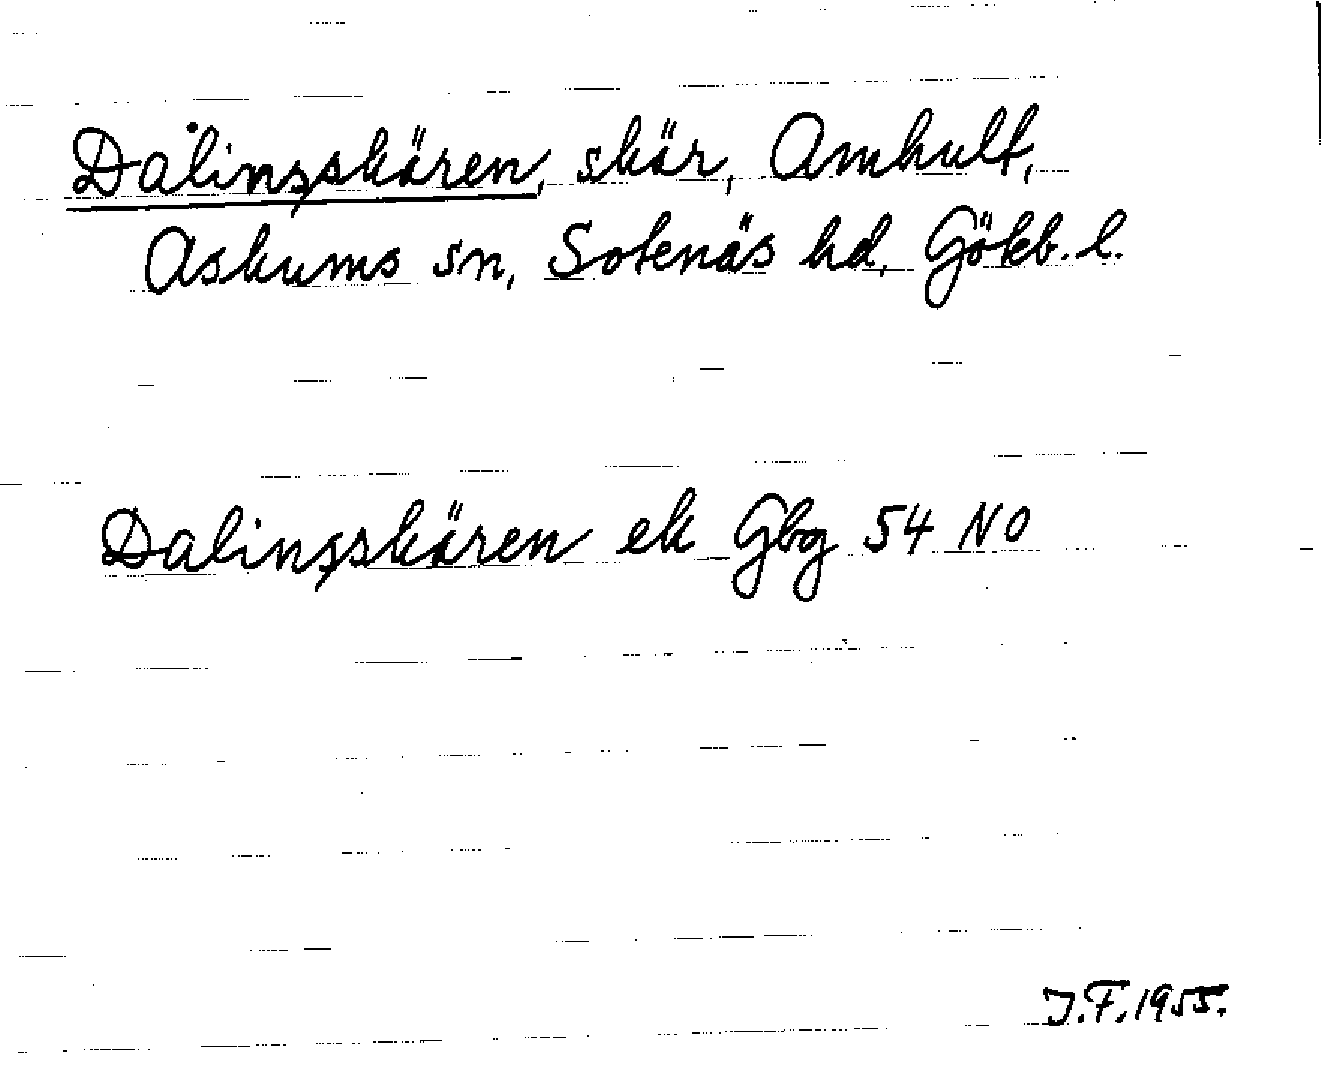 Dalingsskären, skär, Amhult,
Askums sn, Sotenäs hd, Göteb. l.
Dalingsskären ek Gbg 54 NO
J.F. 1955.